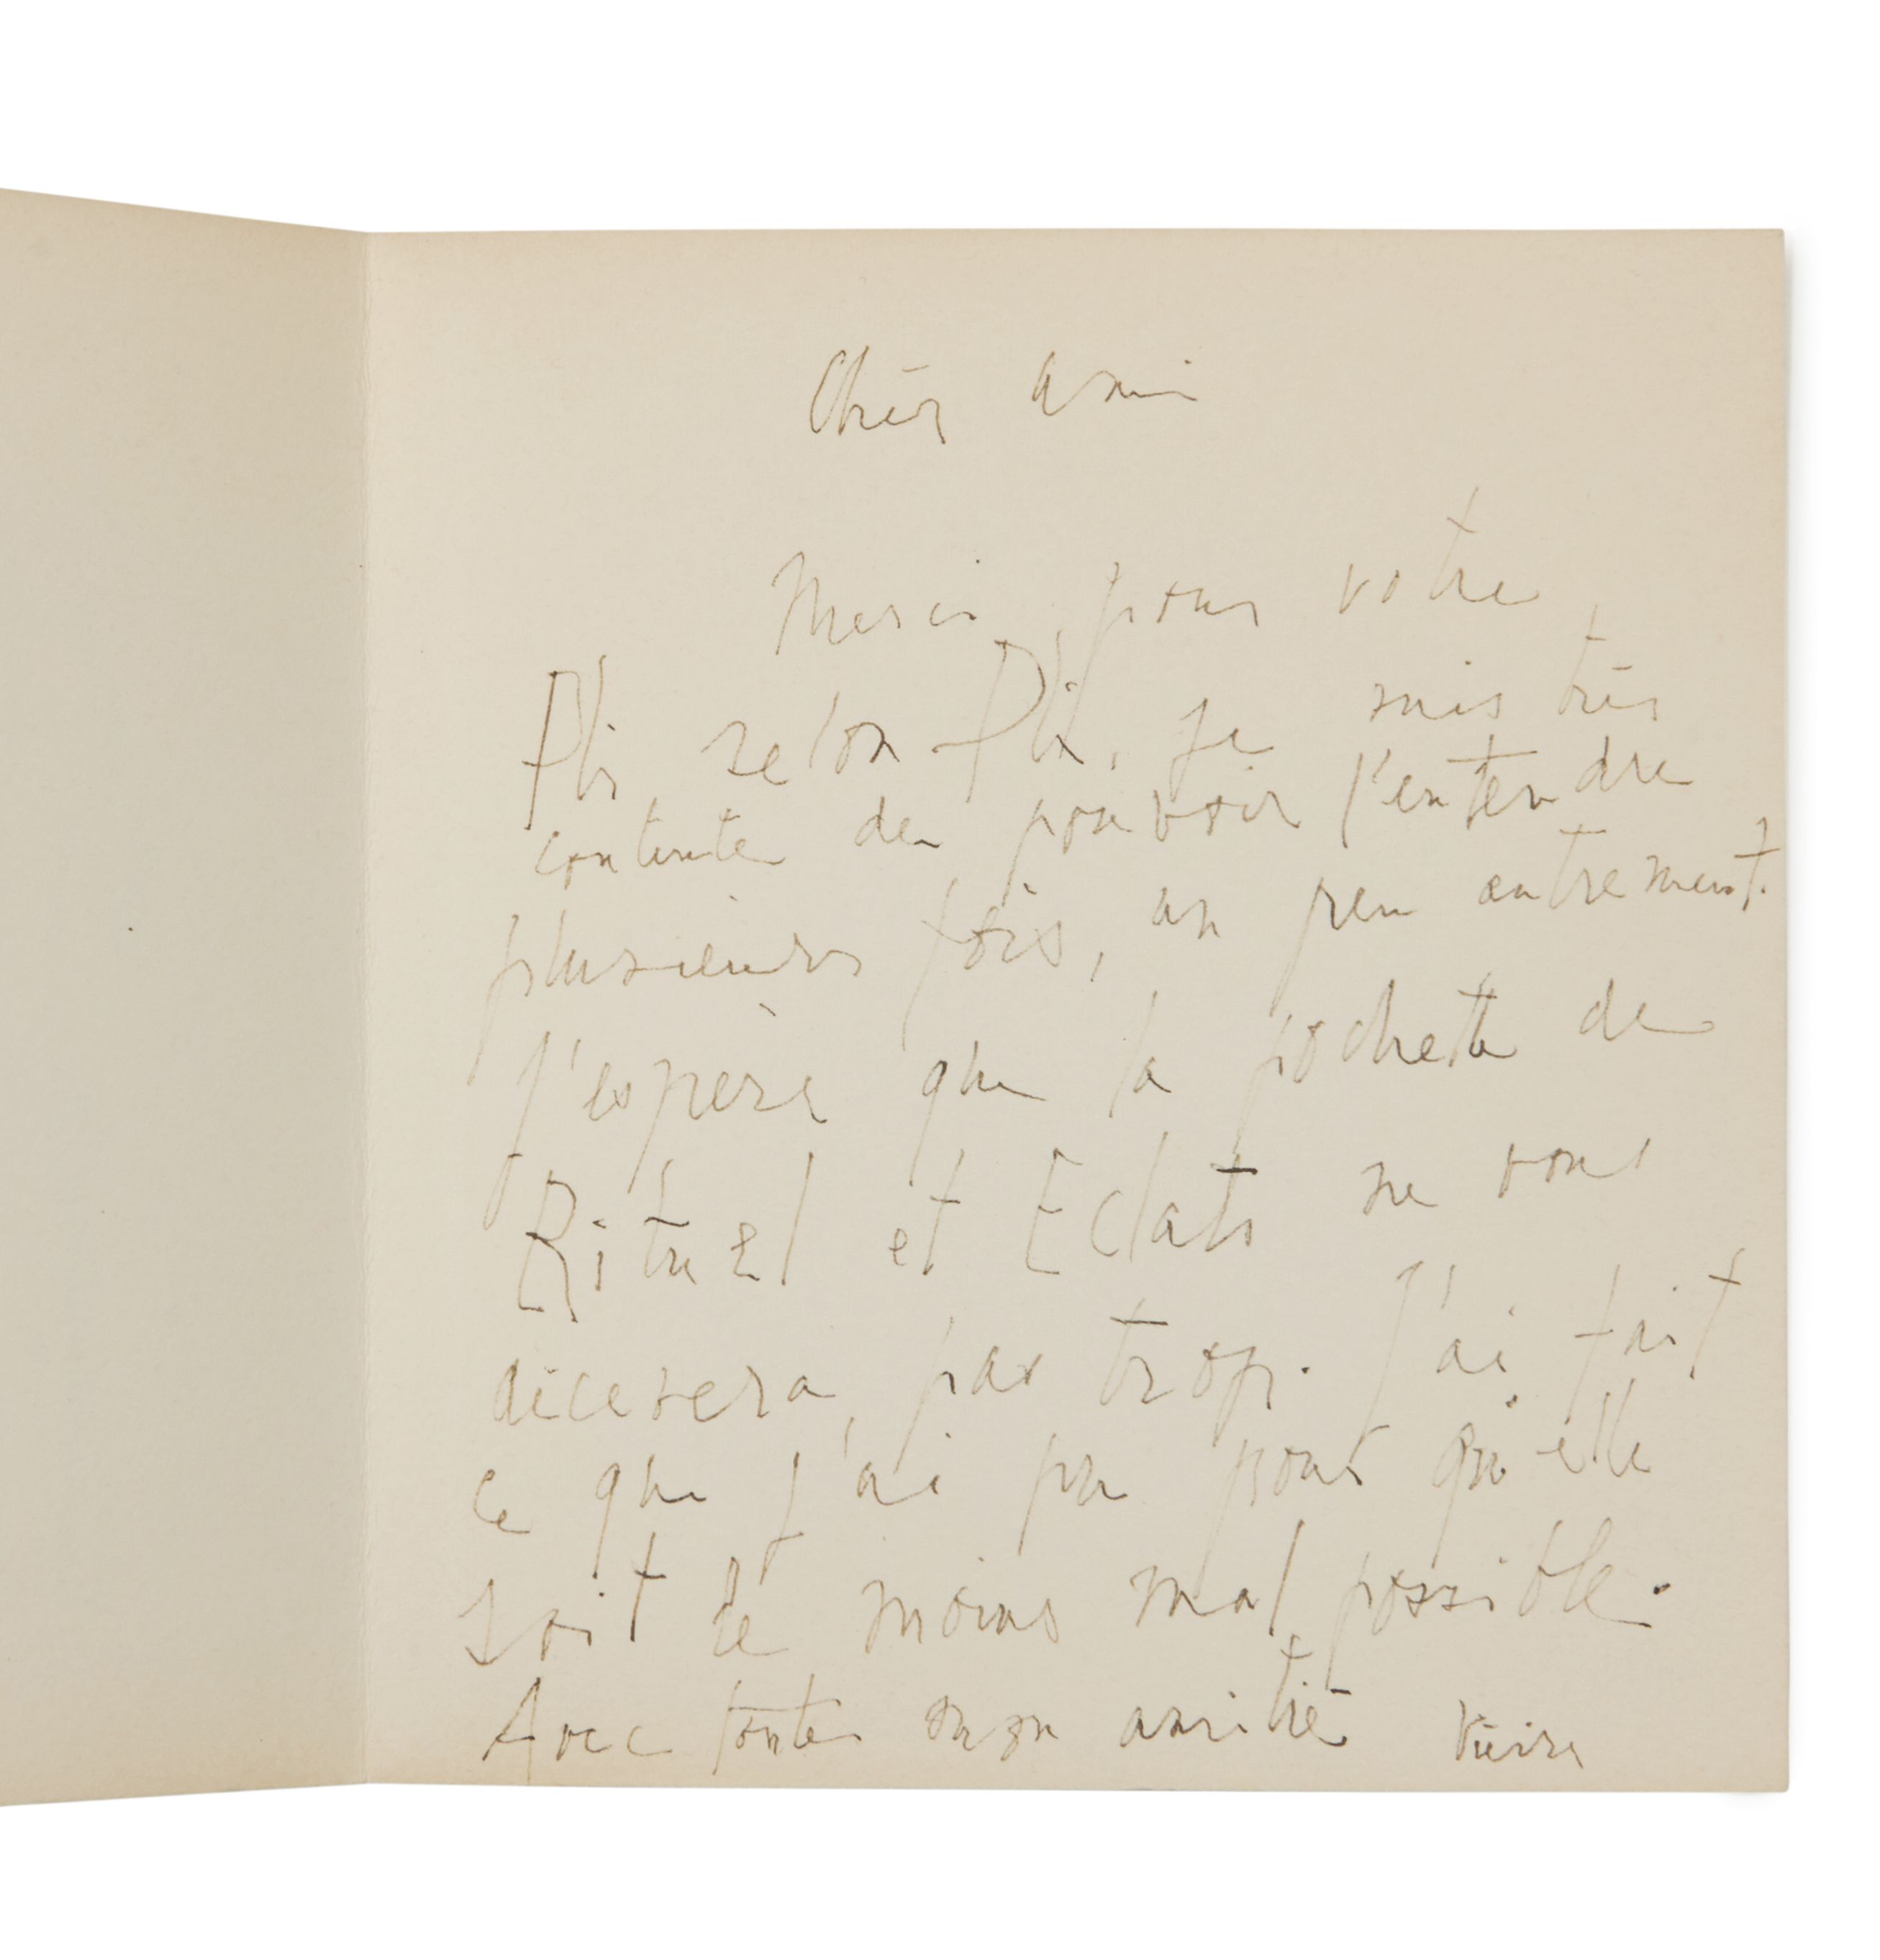 Cher ami
Merci pour votre
Pli selon Pli, je suis très
contente de pouvoir l'entendre
plusieurs fois, un peu autrement.
J'espère que la pochette de
Rituel et Eclats ne vous
décevera pas trop. J'ai fait
ce que j'ai pu pour qu'elle
soit le moins mal possible.
Avec toute mon amitié Vieira